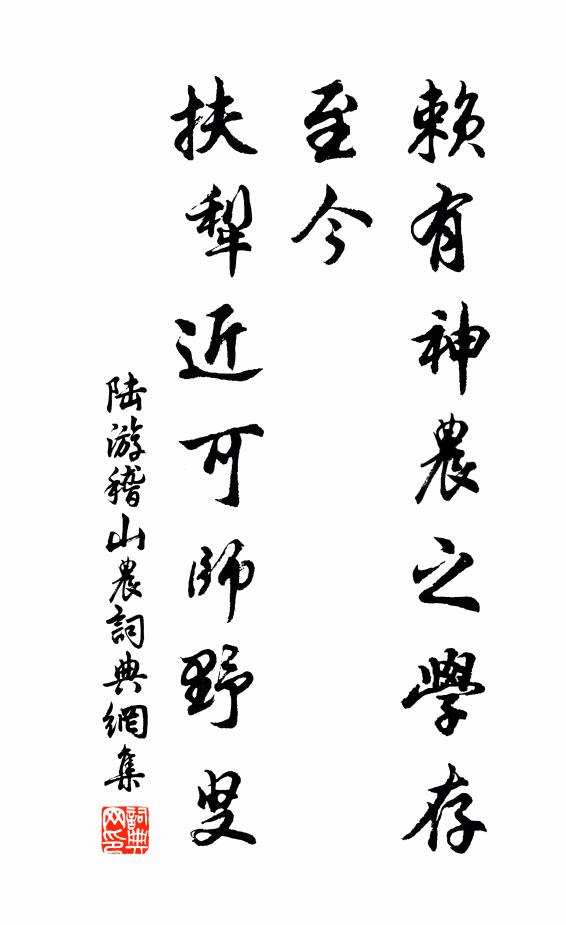 賴有神農之學存
至今
扶犁近可師野叟
陸游稽山農詞典網集
詞典
网印